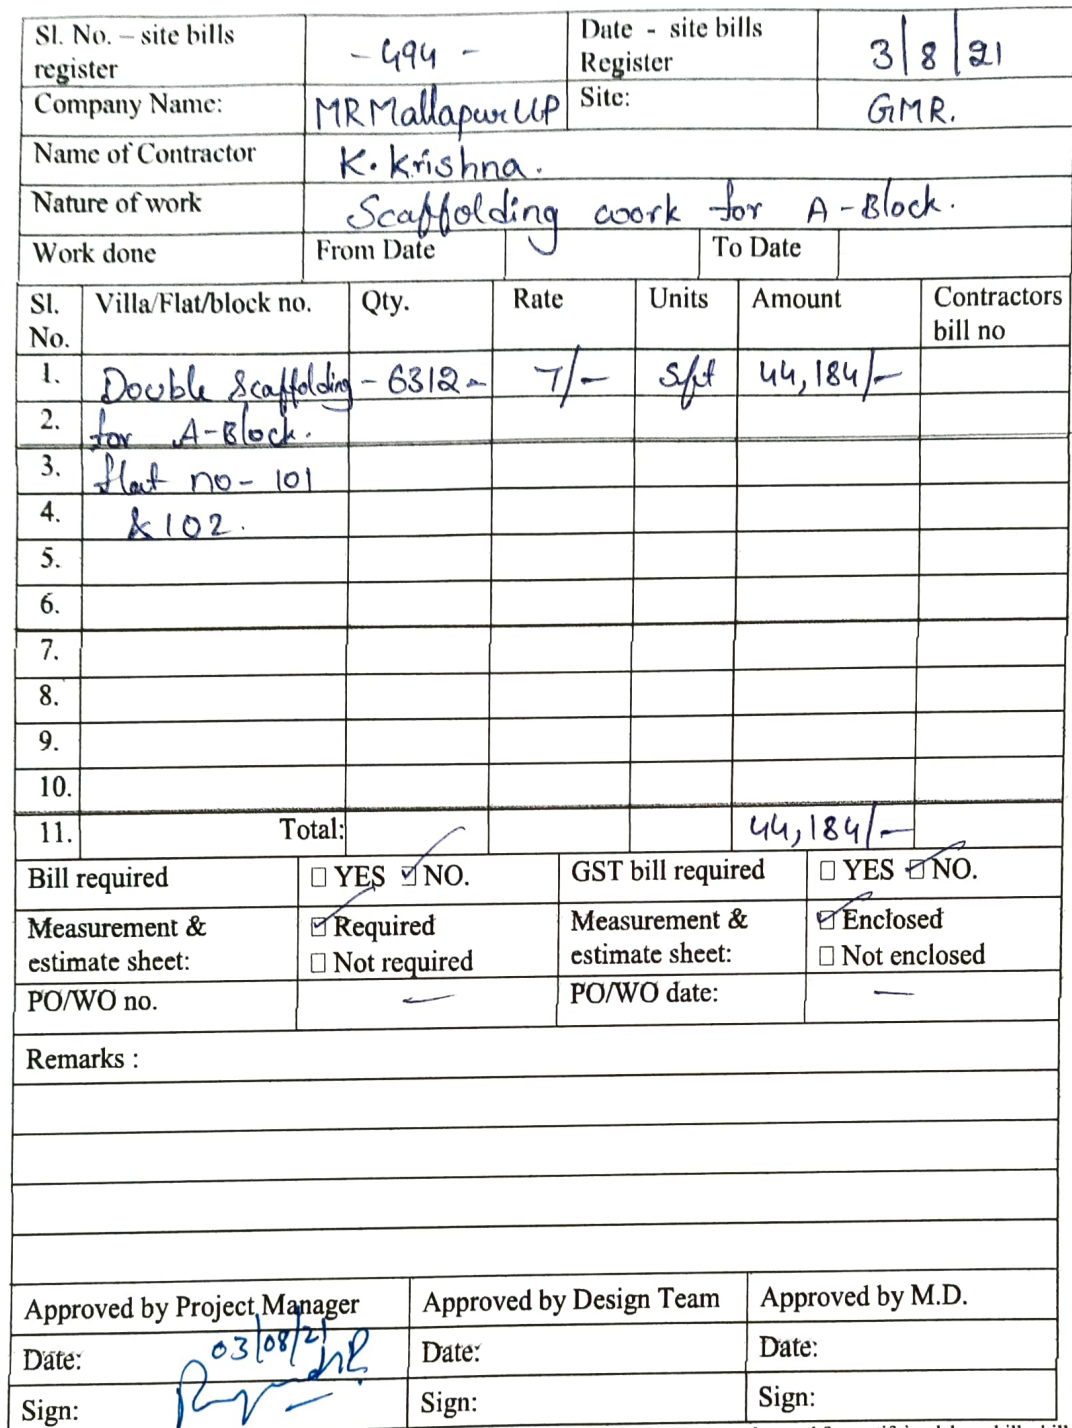 Sl. No. – site bills register - 494 - Date - site bills Register 3/8/21
Company Name: MRMallapurLLP Site: GMR.
Name of Contractor K. Krishna.
Nature of work Scaffolding work for A-Block.
Work done From Date To Date
Sl. No. Villa/Flat/block no. Qty. Rate Units Amount Contractors bill no
1. Double Scaffolding - 6312 - 7/- Sft 44,184/-
2. for A-Block.
3. flat no - 101
4. & 102.
5.
6.
7.
8.
9.
10.
11. Total: 44,184/-
Bill required ☐ YES ☑ NO. GST bill required ☐ YES ☑ NO.
Measurement & estimate sheet: ☑ Required ☐ Not required Measurement & estimate sheet: ☑ Enclosed ☐ Not enclosed
PO/WO no. — PO/WO date: —
Remarks :
Approved by Project Manager Approved by Design Team Approved by M.D.
Date: 03/08/21 Date: Date:
Sign: Sign: Sign: